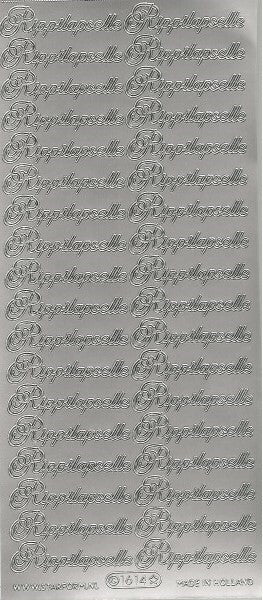 Rippilapselle Rippilapselle
Rippilapselle Rippilapselle
Rippilapselle Rippilapselle
Rippilapselle Rippilapselle
Rippilapselle Rippilapselle
Rippilapselle Rippilapselle
Rippilapselle Rippilapselle
Rippilapselle Rippilapselle
Rippilapselle Rippilapselle
Rippilapselle Rippilapselle
Rippilapselle Rippilapselle
Rippilapselle Rippilapselle
Rippilapselle Rippilapselle
Rippilapselle Rippilapselle
Rippilapselle Rippilapselle
Rippilapselle Rippilapselle
Rippilapselle Rippilapselle
Rippilapselle Rippilapselle
WWW.STARFORM.NL ©1614☆ MADE IN HOLLAND